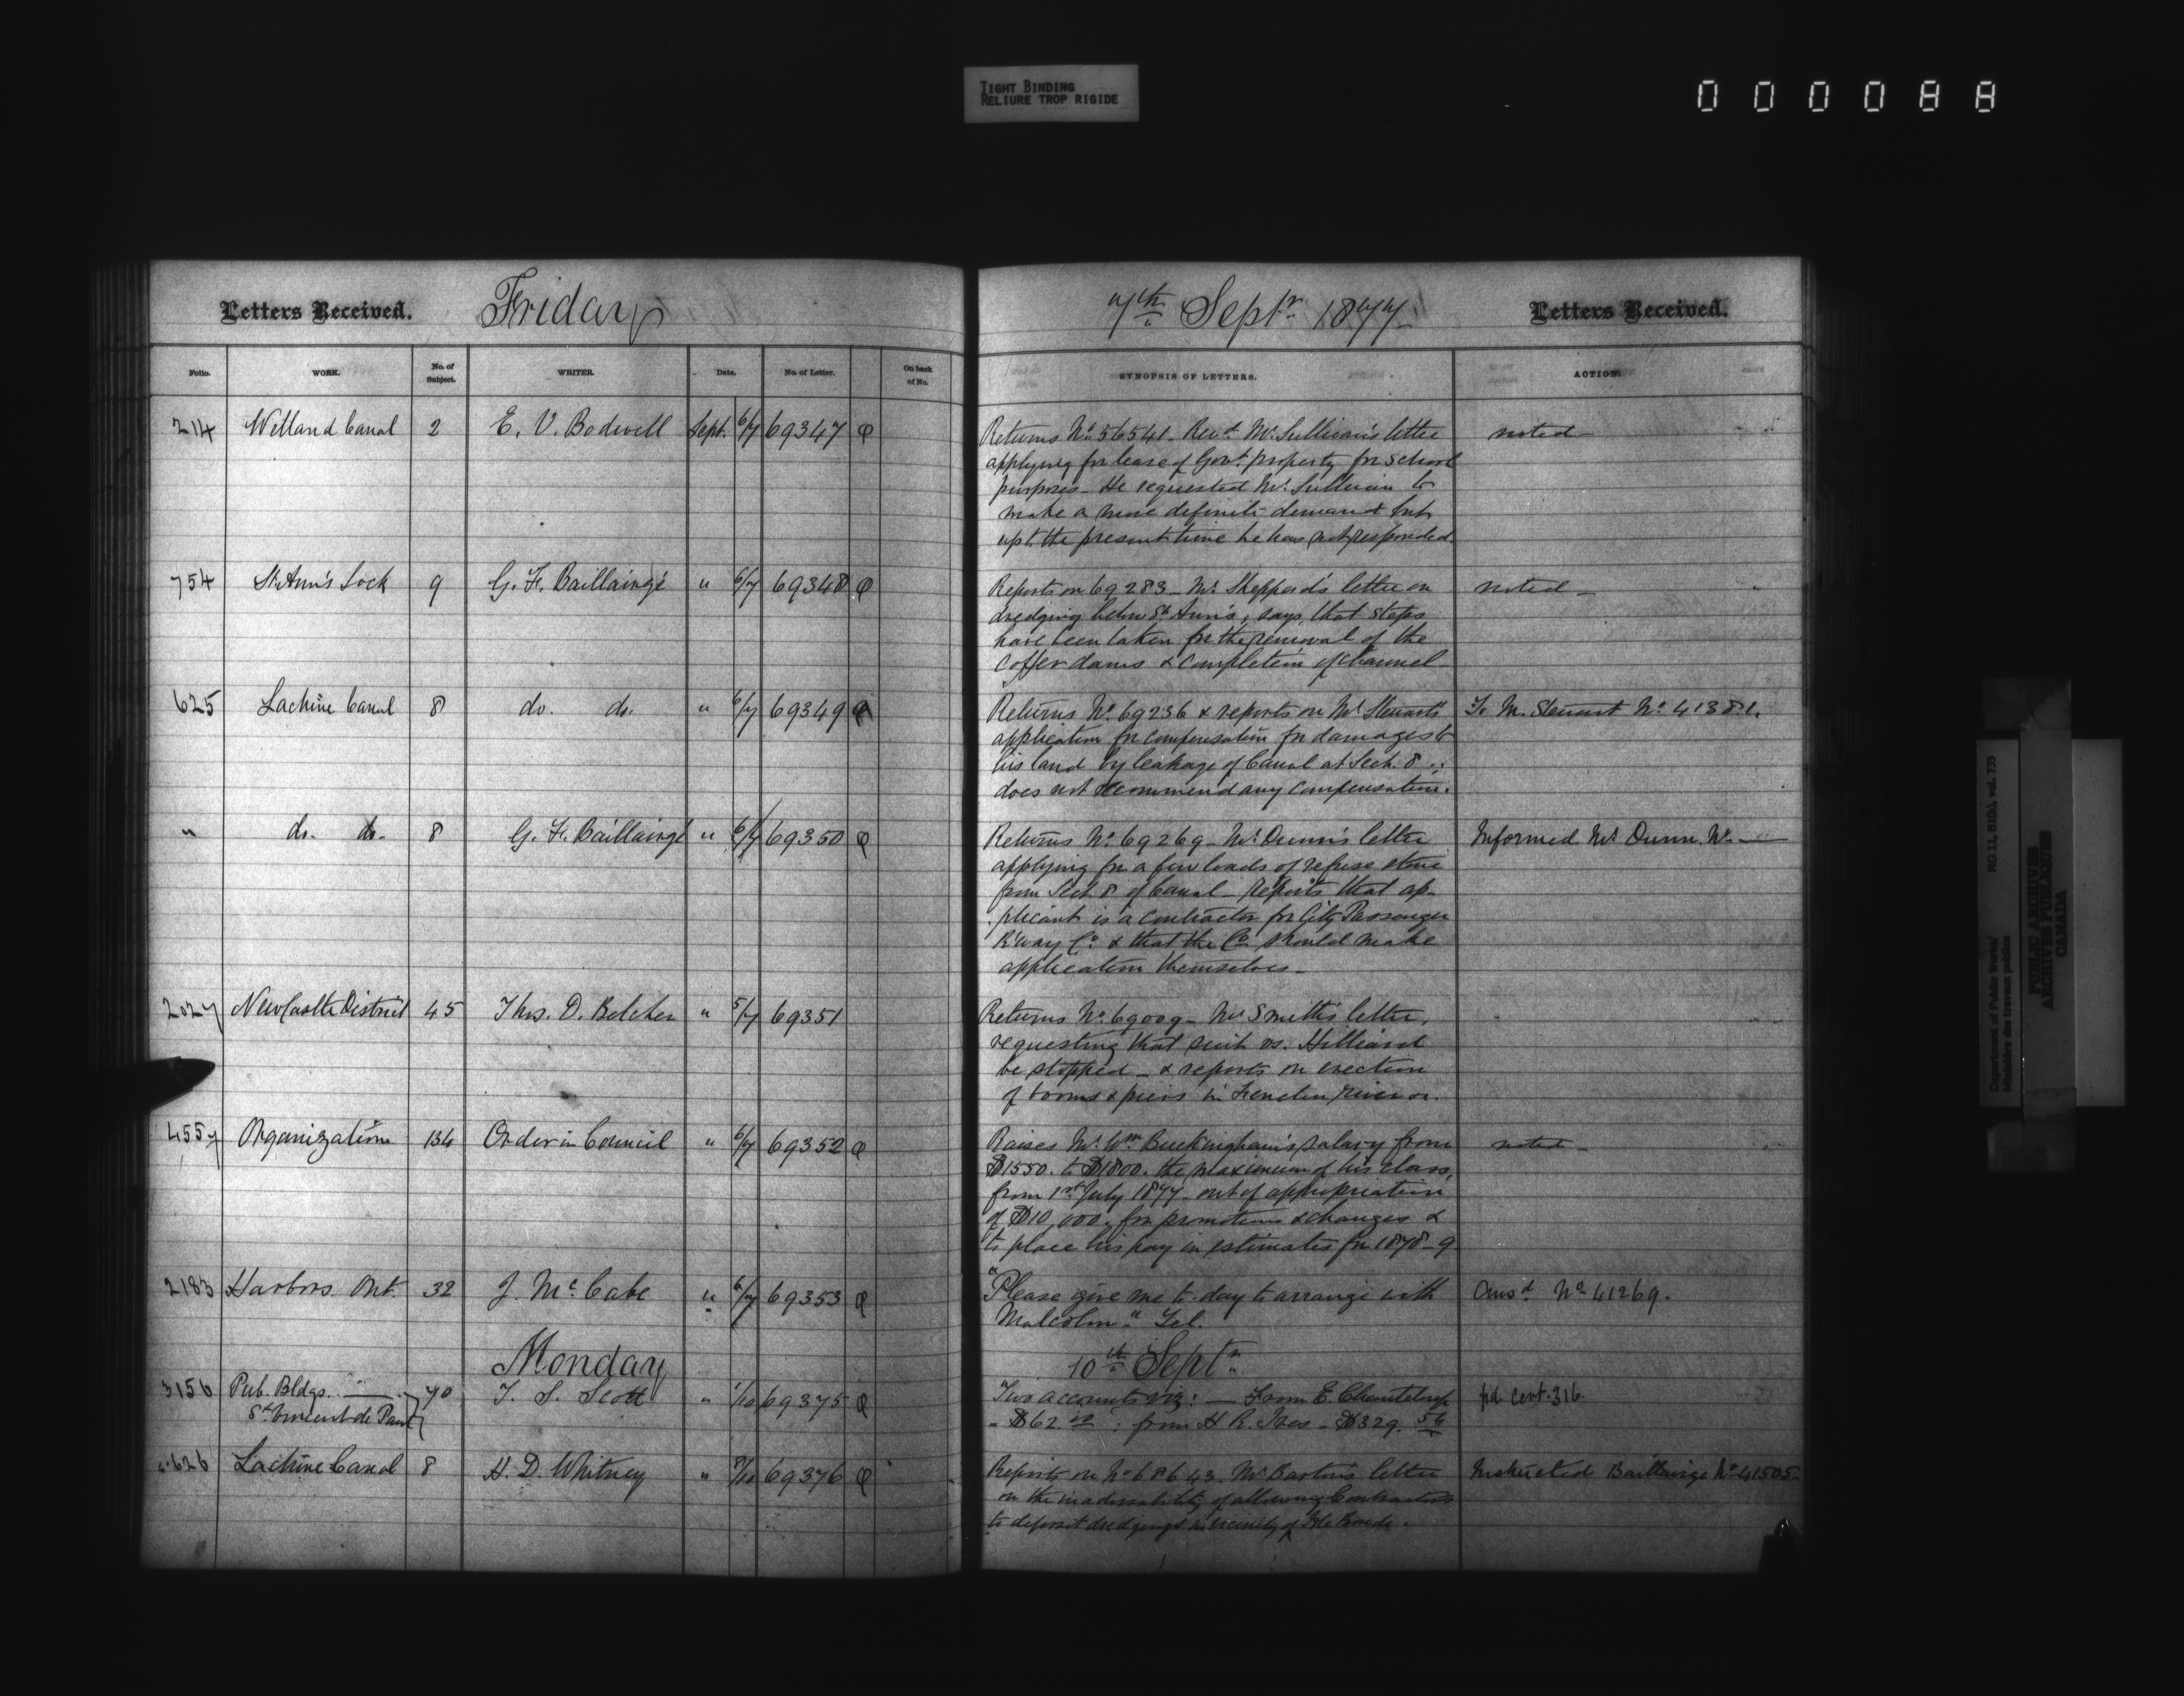 TIGHT BINDING
RELIURE TROP RIGIDE
000088
Letters Received. Friday
7th Septr 1877 Letters Received.
Folio. WORK. No. of Subject. WRITER. Date. No. of Letter. On back of No.
SYNOPSIS OF LETTERS. ACTION.
214 Welland Canal 2 E. V. Bodwell Sept. 6/7 69347
Returns No 56541 - Revd Mr Sullivan's letter noted
applying for lease of Govt property for school
purposes - He requested Mr Sullivan to
make a more definite demand but
up to the present time he has not responded.
754 St Ann's Lock 9 G. F. Baillairgé " 6/7 69348
Reports on 69283 - Mr Sheppard's letter on noted -
dredging below St Ann's, says that steps
have been taken for the removal of the
coffer dams & completion of channel
625 Lachine Canal 8 do. do. " 6/7 69349
Returns No 69236 & reports on Mr Steuart's To M. Steuart No 41381.
application for compensation for damages to
his land by leakage of Canal at Sect. 8
does not recommend any compensation.
" do. do. 8 G. F. Baillairgé " 6/7 69350
Returns No 69269 - Mr Dunn's letter Informed Mr Dunn. No —
applying for a few loads of refuse stone
from Sect. 8 of Canal - Reports that ap-
plicant is a contractor for City Passenger
R'way Co & that the Co should make
application themselves -
2027 Newcastle District 45 Thos. D. Belcher " 5/7 69351
Returns No 69009 - Mr Smith's letter,
requesting that suit vs. Hilliard
be stopped - & reports on erection
of booms & piers in Fenelon River
4557 Organization 134 Order in Council " 6/7 69352
Raises Mr Wm Buckingham's salary from noted -
$1550. to $1800. the maximum of his class,
from 1st July 1877 - out of appropriation
of $10,000. for promotions & changes &
to place his pay in estimates for 1878-9
2183 Harbors Ont. 32 J. McCabe " 6/7 69353
"Please give me to-day to arrange with Ansd No 41269.
Malcolm" Tel.
Monday
10th Septr
3156 Pub. Bldgs. — 70 T. S. Scott " 1/10 69375
St Vincent de Paul
Two accounts viz: — From E. Chanteloup pd cert. 316
- $62. : from H R. Ives - $329.
626 Lachine Canal 8 H. D. Whitney " 69376
Reports on No 68643 - Mr Barton's letter Instructed Baillairgé No 41505
on the inadvisability of allowing Contractors
to deposit dredgings in vicinity of
Department of Public Works/
Ministère des travaux publics
RG 11, B1(b), vol. 735
PUBLIC ARCHIVES
ARCHIVES PUBLIQUES
CANADA